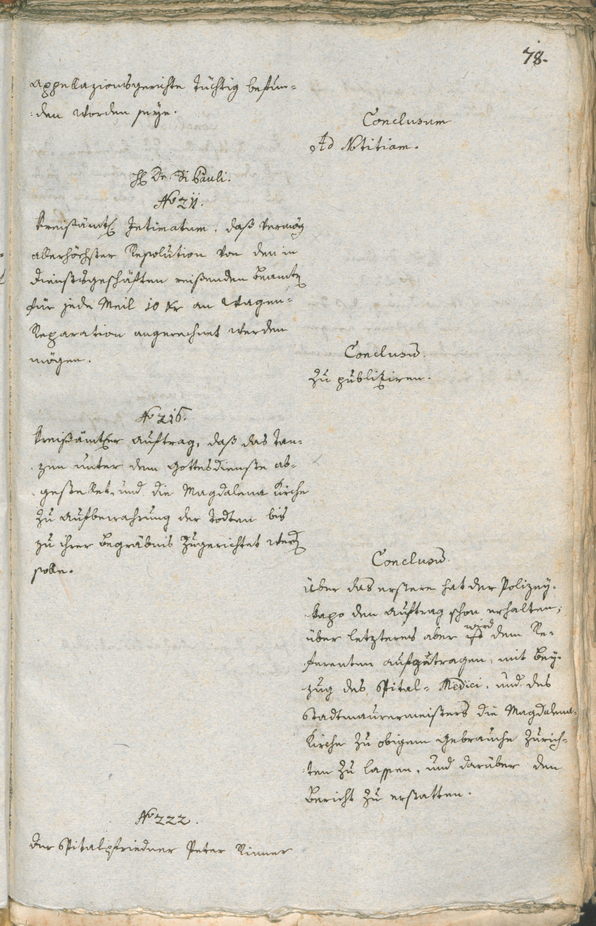 78.
appellazionsgerichte tüchtig befun-
den worden seye.
Conclusum
Ad Notitiam.
H Dr. Di Pauli.
No 211.
Kreißämtl Intimatum, daß vermög
allerhöchster Resolution von den in
Dienstsgeschäften reißenden Beamte
für jede Meil 10 Kr an Wagen-
Reparation angerechnet werden
mögen.
Conclusū.
Zu publiziren.
No 216.
Kreißämtler Auftrag, daß das Tan-
zen unter dem Gottesdienste ab-
gestellet, und die Magdalena Kirche
zu Aufbewahrung der Todten bis
zu ihrer Begräbnis zugerichtet werd
solle.
Conclusū.
über das erstere hat der Polizey-
kapo den Auftrag schon erhalten;
über letzteres aber wird dem Re-
ferenten aufgetragen, mit Bey-
zug des Spital-Medici, und des
Stadtmaurermeisters die Magdalena-
Kirche zu obigem Gebrauche zurich-
ten zu lassen, und darüber den
Bericht zu erstatten.
No 222.
Der Spitalpfriedner Peter Rinner